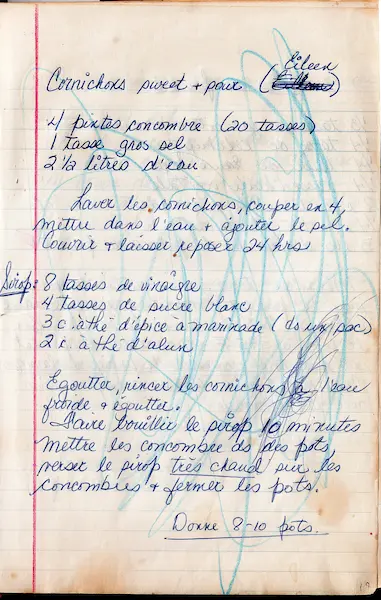 Eileen
Cornichons sweet + sour (
)
4 pintes concombre (20 tasses)
1 tasse gros sel
2 1/2 litres d'eau
Laver les cornichons, couper en 4,
mettre dans l'eau + ajouter le sel.
Couvrir + laisser reposer 24 hrs
Sirop: 8 tasses de vinaigre
4 tasses de sucre blanc
3 c. à thé d'épice à marinade (ds un sac)
2 c. à thé d'alun
Egoutter, rincer les cornichons à l'eau
froide + égoutter.
Faire bouillir le sirop 10 minutes
mettre les concombre ds des pots,
verser le sirop très chaud sur les
concombres + fermer les pots.
Donne 8-10 pots.